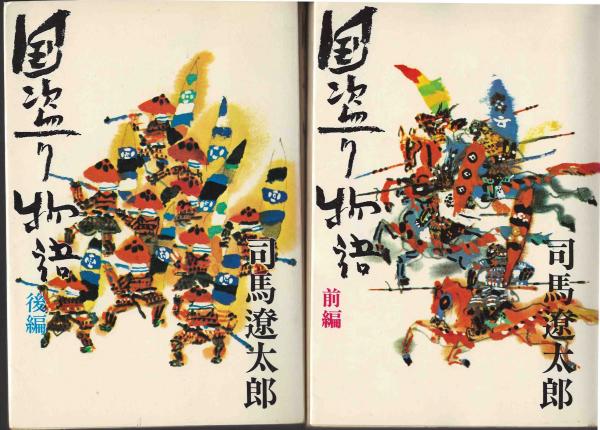 国盗り物語
前編
司馬遼太郎
国盗り物語
後編
司馬遼太郎